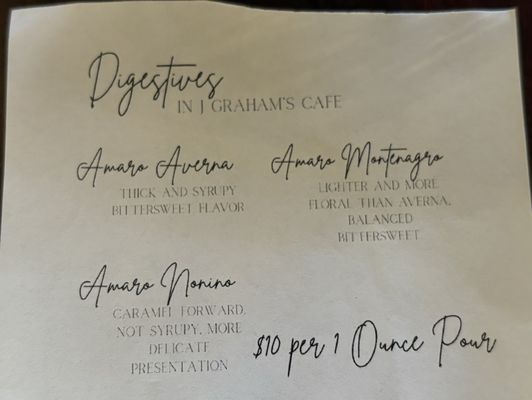 Digestives
IN J GRAHAM'S CAFE
Amaro Averna
THICK AND SYRUPY
BITTERSWEET FLAVOR
Amaro Montenagro
LIGHTER AND MORE
FLORAL THAN AVERNA,
BALANCED
BITTERSWEET
Amaro Nonino
CARAMEL FORWARD,
NOT SYRUPY, MORE
DELICATE
PRESENTATION
$10 per 1 Ounce Pour